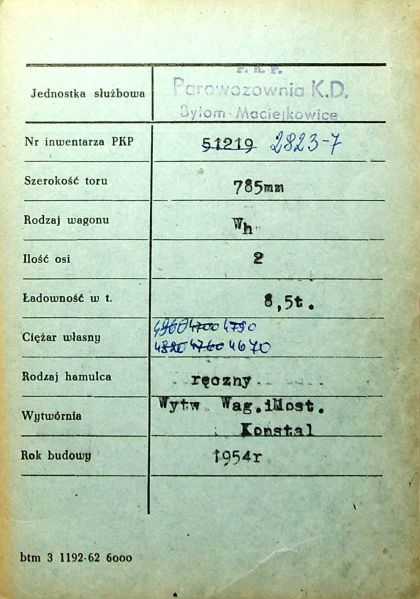 P. K. P.
Jednostka służbowa Parowozownia K.D.
Bytom-Maciejkowice
Nr inwentarza PKP 51219 2823-7
Szerokość toru 785mm
Rodzaj wagonu Wh
Ilość osi 2
Ładowność w t. 8,5t.
Ciężar własny 4960 4700 4790
4820 4760 4670
Rodzaj hamulca ręczny
Wytwórnia Wytw Wag.iMost.
Konstal
Rok budowy 1954r
btm 3 1192-62 6000